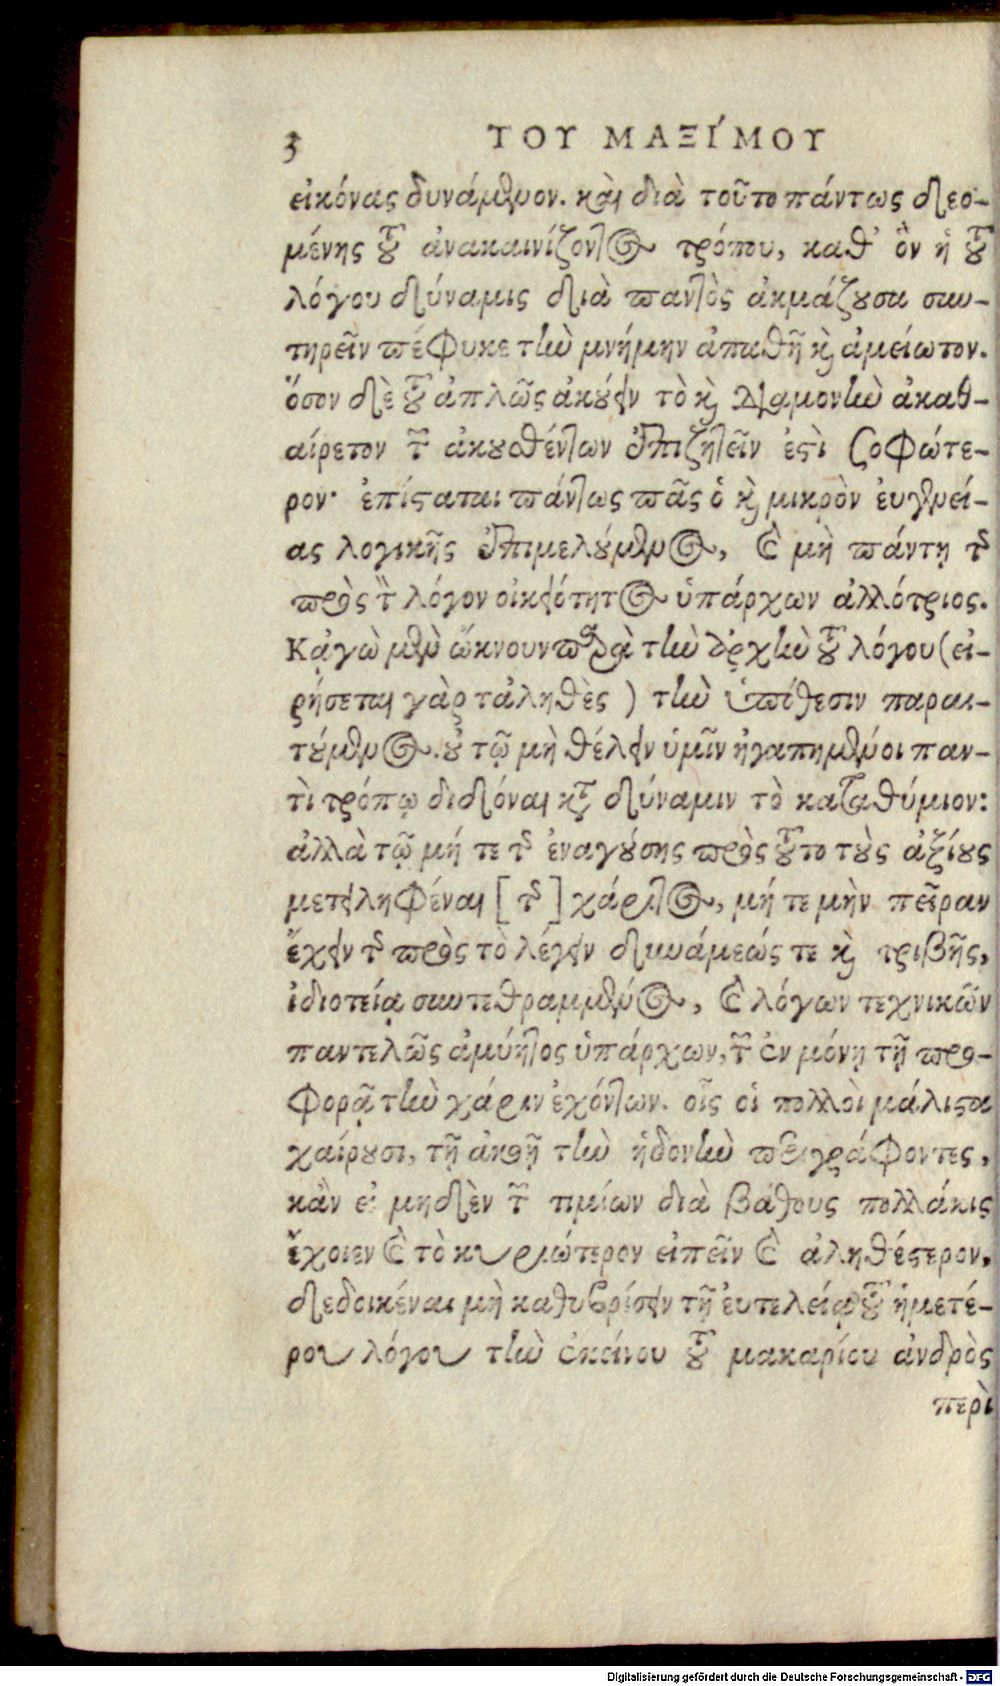 3 ΤΟΥ ΜΑΞΊΜΟΥ
εἰκόνας δυνάμενον. καὶ διὰ τοῦτο πάντως δεο-
μένης τοῦ ἀνακαινίζοντος τρόπου, καθ’ ὃν ἡ τοῦ
λόγου δύναμις διὰ παντὸς ἀκμάζουσα συν-
τηρεῖν πέφυκε τὴν μνήμην ἀπαθῆ καὶ ἀμείωτον.
ὅσον δὲ τοῦ ἁπλῶς ἀκούειν τὸ καὶ διαμονὴν ἀκαθ-
αίρετον τῶν ἀκουσθέντων ἐπιζητεῖν ἐστὶ σοφώτε-
ρον· ἐπίσταται πάντως πᾶς ὁ καὶ μικρὸν εὐγενεί-
ας λογικῆς ἐπιμελούμενος, καὶ μὴ πάντῃ τῆς
πρὸς τὸν λόγον οἰκειότητος ὑπάρχων ἀλλότριος.
Κᾀγὼ μὲν ὤκνουν παρὰ τὴν ἀρχὴν τοῦ λόγου (εἰ-
ρήσεται γὰρ τἀληθὲς) τὴν ὑπόθεσιν παραι-
τούμενος. οὐ τῷ μὴ θέλειν ὑμῖν ἠγαπημένοι παν-
τὶ τρόπῳ διδόναι κατὰ δύναμιν τὸ καταθύμιον:
ἀλλὰ τῷ μή τε τῆς ἐναγούσης πρὸς τοῦτο τοὺς ἀξίους
μετειληφέναι [τῆς] χάριτος, μή τε μὴν πεῖραν
ἔχειν τῆς πρὸς τὸ λέγειν δυνάμεώς τε καὶ τριβῆς,
ἰδιοτείᾳ συντεθραμμένος, καὶ λόγων τεχνικῶν
παντελῶς ἀμύητος ὑπάρχων, τῶν ἐν μόνῃ τῇ προ-
φορᾷ τὴν χάριν ἐχόντων. οἷς οἱ πολλοὶ μάλιστα
χαίρουσι, τῇ ἀκοῇ τὴν ἡδονὴν περιγράφοντες,
κἂν εἰ μηδὲν τῶν τιμίων διὰ βάθους πολλάκις
ἔχοιεν καὶ τὸ κυριώτερον εἰπεῖν καὶ ἀληθέστερον,
δεδοικέναι μὴ καθυβρίσειν τῇ εὐτελείᾳ τοῦ ἡμετέ-
ρου λόγου τὴν ἐκείνου τοῦ μακαρίου ἀνδρὸς
περὶ
Digitalisierung gefördert durch die Deutsche Forschungsgemeinschaft - DFG